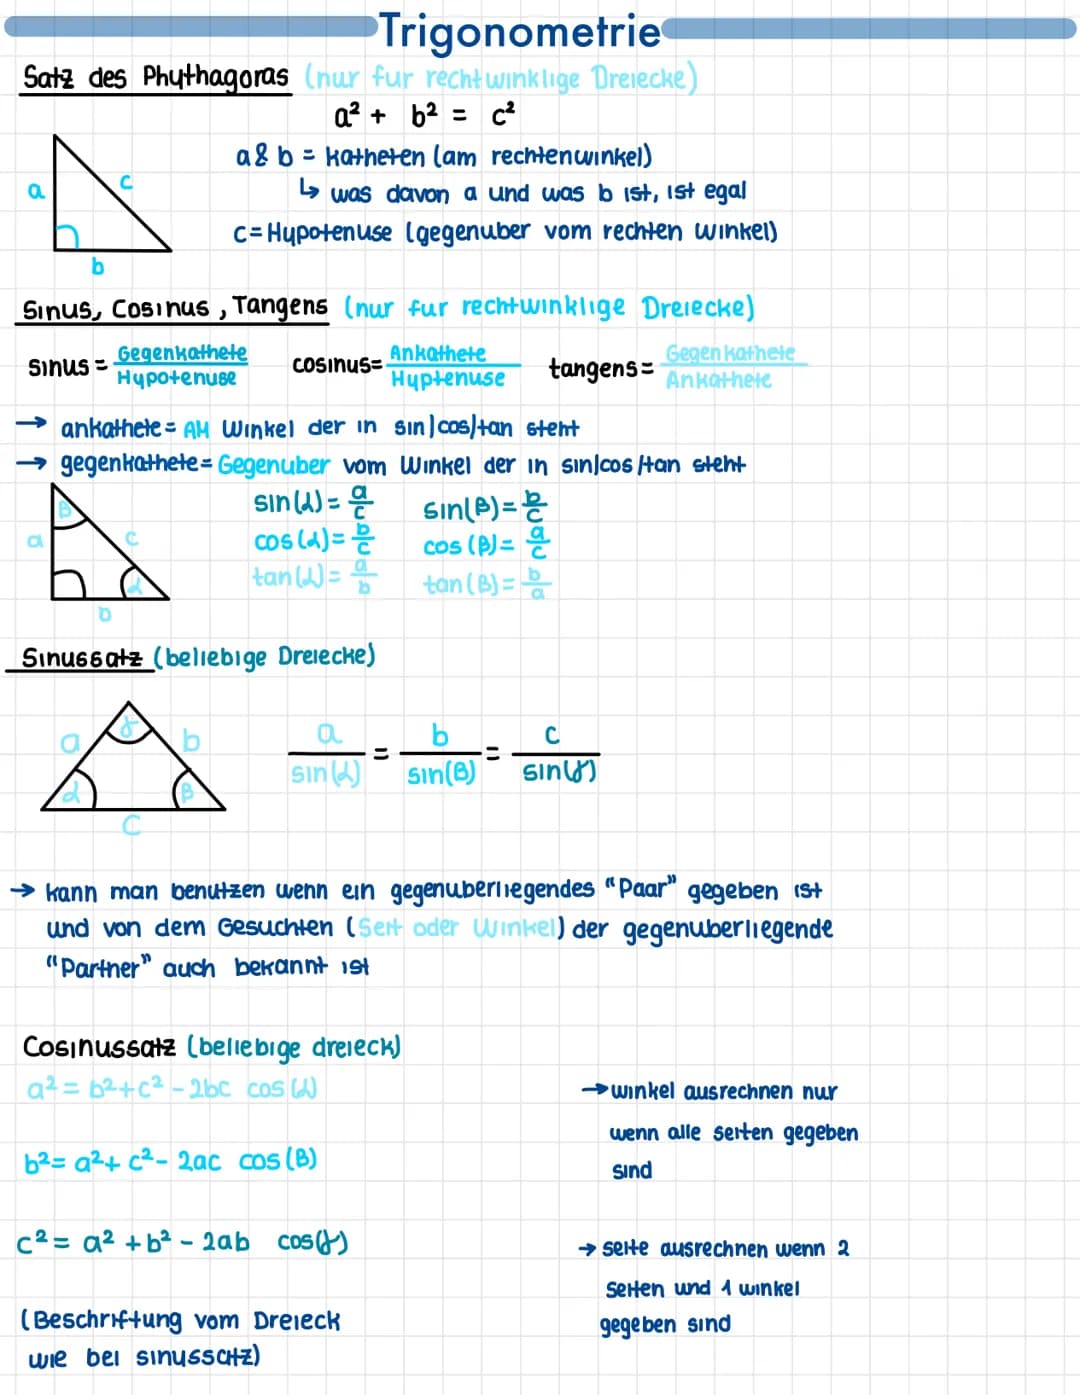 Trigonometrie
Satz des Phythagoras (nur fur rechtwinklige Dreiecke)
a² + b² = c²
a & b = katheten (am rechtenwinkel)
↳ was davon a und was b ist, ist egal
c = Hypotenuse (gegenuber vom rechten winkel)
a
c
b
Sinus, Cosinus, Tangens (nur fur rechtwinklige Dreiecke)
sinus = Gegenkathete / Hypotenuse cosinus = Ankathete / Hyptenuse tangens = Gegenkathete / Ankathete
→ ankathete = AM Winkel der in sin/cos/tan steht
→ gegenkathete = Gegenuber vom Winkel der in sin/cos/tan steht
β
a
c
α
b
sin(α) = a/c sin(β) = b/c
cos(α) = b/c cos(β) = a/c
tan(α) = a/b tan(β) = b/a
Sinussatz (beliebige Dreiecke)
γ
a
b
α
β
c
a/sin(α) = b/sin(β) = c/sin(γ)
→ kann man benutzen wenn ein gegenuberliegendes "Paar" gegeben ist
und von dem Gesuchten (Seit oder Winkel) der gegenuberliegende
"Partner" auch bekannt ist
Cosinussatz (beliebige dreieck)
a² = b² + c² - 2bc cos(α)
b² = a² + c² - 2ac cos(β)
c² = a² + b² - 2ab cos(γ)
(Beschriftung vom Dreieck
wie bei sinussatz)
→ winkel ausrechnen nur
wenn alle seiten gegeben
sind
→ seite ausrechnen wenn 2
seiten und 1 winkel
gegeben sind